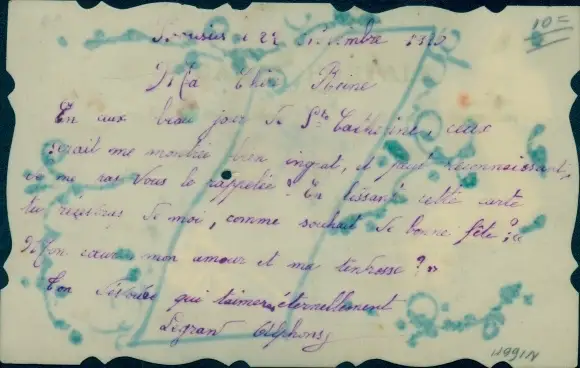 10=
le 22 Novembre
Ma Chère Reine
En aux beau jour de Ste Catherine, ceux
serait me montrée bien ingrat, et peut reconnaissant,
ce me pas vous le rappelée? En lissant cette carte
tu de moi, comme souhait de bonne fête?
Mon cœur, mon amour et ma tendresse?"
Ton qui t'aimera éternellement
Legrand Alphons